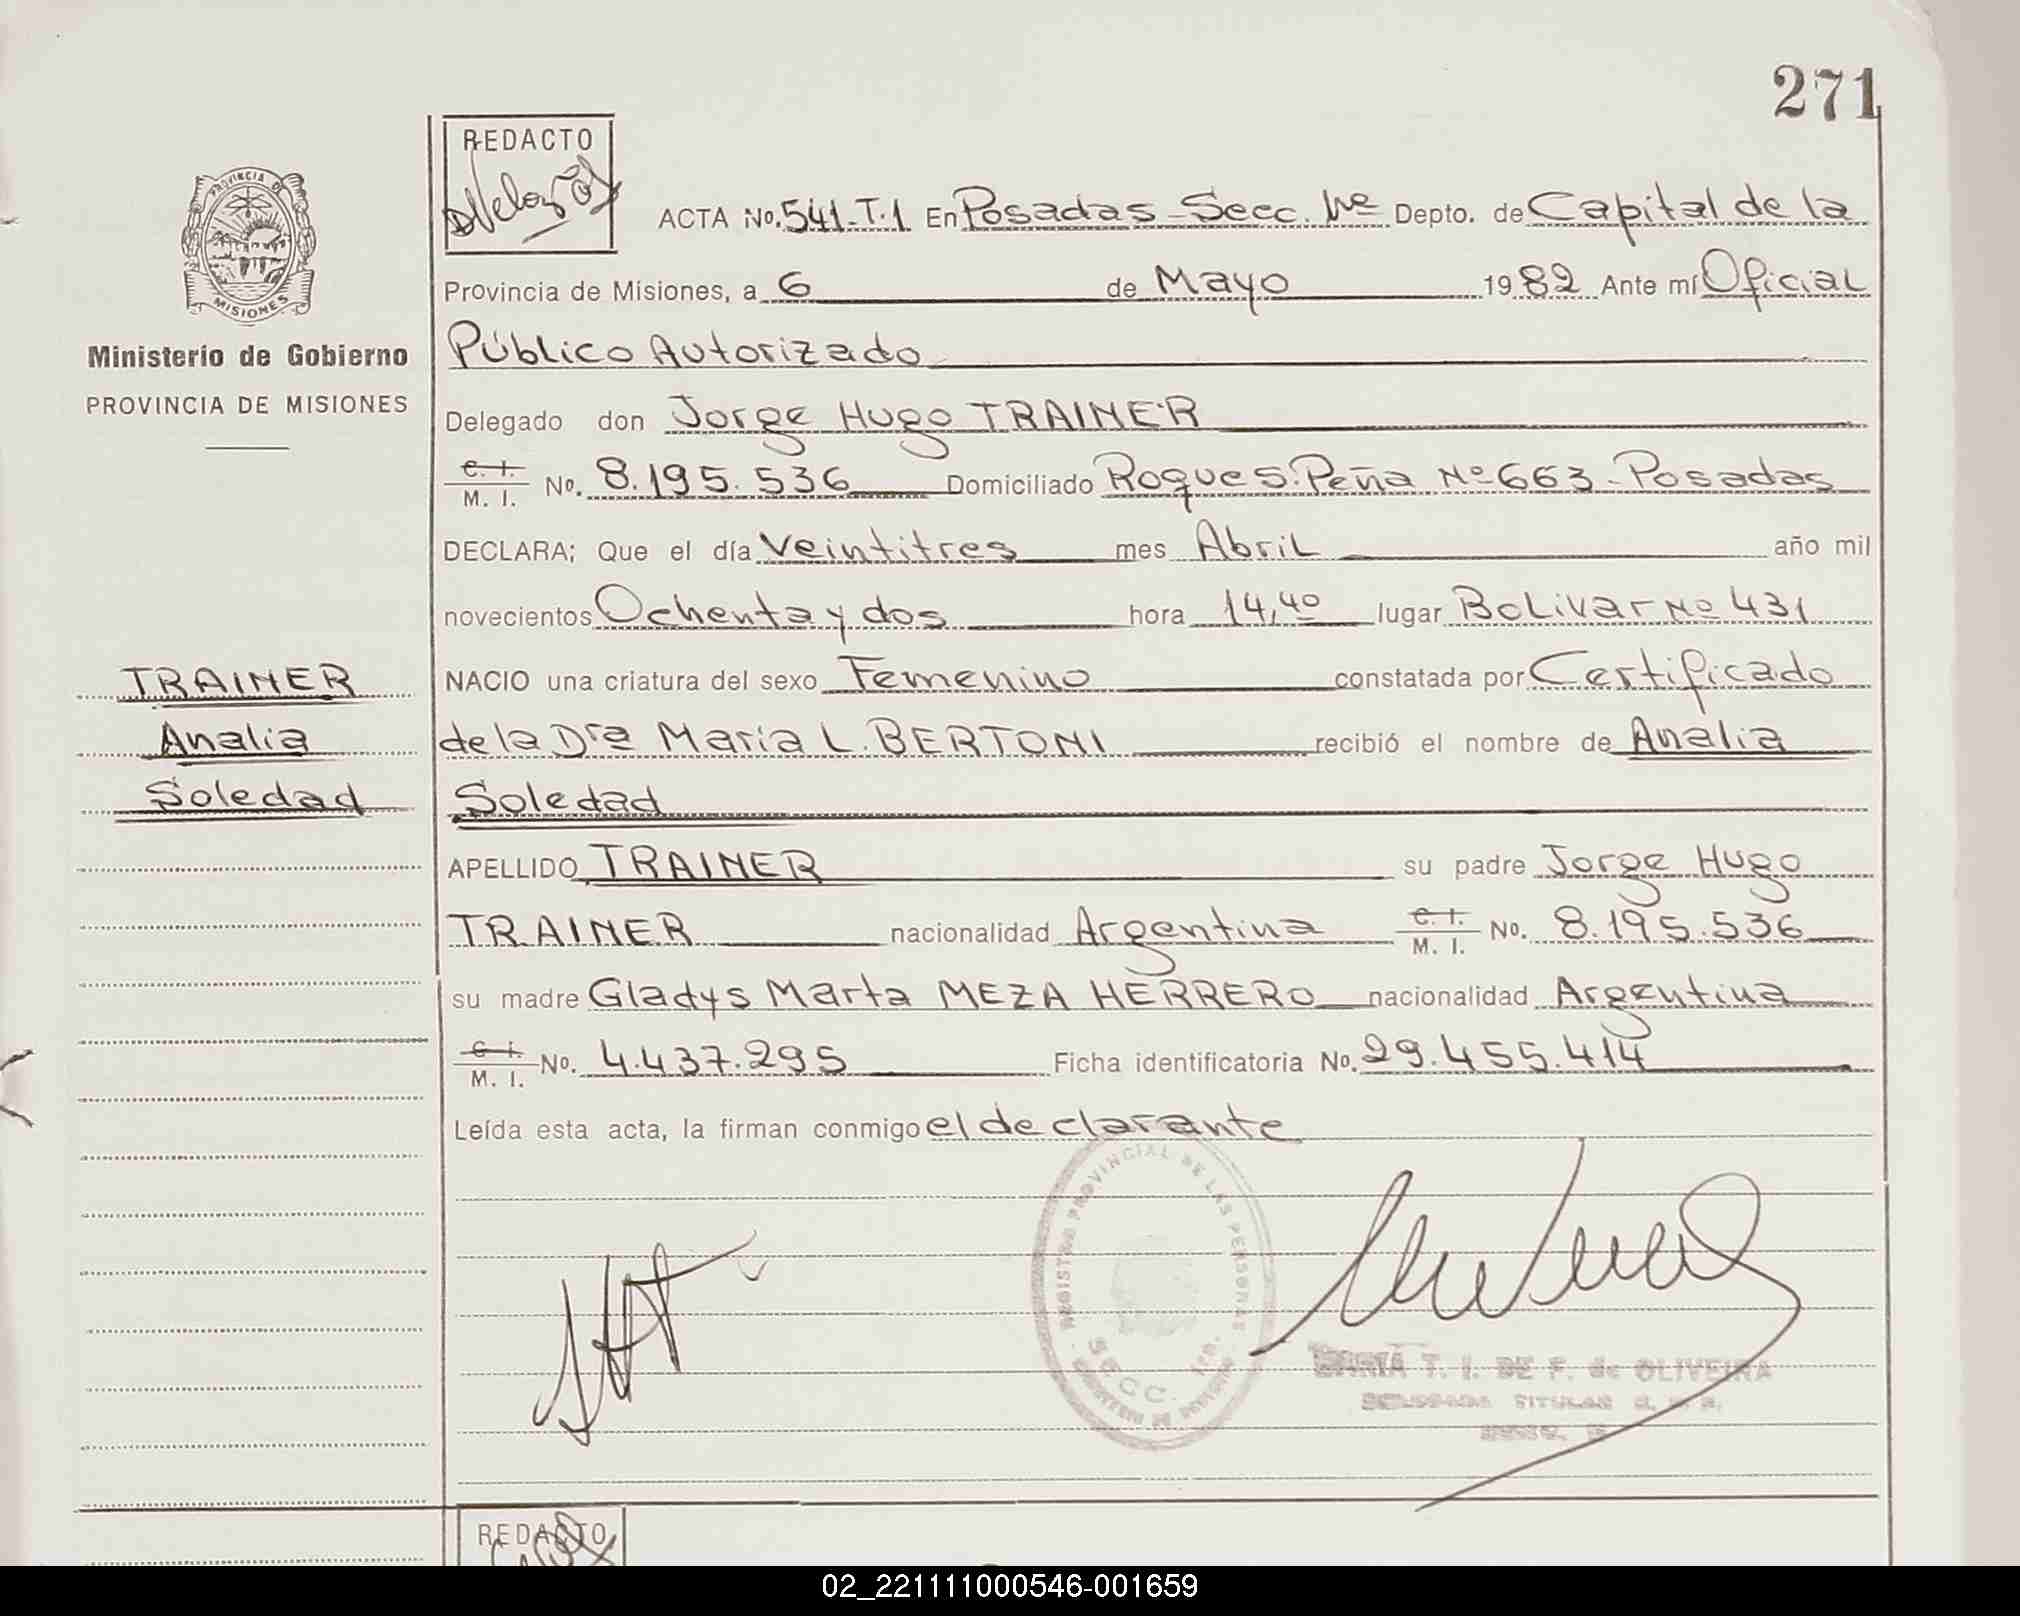 271
REDACTO
PROVINCIA DE
MISIONES
Ministerio de Gobierno
PROVINCIA DE MISIONES
TRAINER
Analia
Soledad
ACTA No. 541-T.1 En Posadas-Secc. Depto. de Capital de la
Provincia de Misiones, a 6 de Mayo 1982 Ante mí Oficial
Público Autorizado
Delegado don Jorge Hugo TRAINER
C. I. M. I. No. 8.195.536 Domiciliado Roque S. Peña Nº 663-Posadas
DECLARA; Que el día Veintitres mes Abril año mil
novecientos Ochenta y dos hora 14,40 lugar Bolivar Nº 431
NACIO una criatura del sexo Femenino constatada por Certificado
de la Dra Maria L. BERTONI recibió el nombre de Analia
Soledad
APELLIDO TRAINER su padre Jorge Hugo
TRAINER nacionalidad Argentina C. I. M. I. No. 8.195.536
su madre Gladys Marta MEZA HERRERO nacionalidad Argentina
C. I. M. I. No. 4.437.295 Ficha identificatoria No. 29.455.414
Leída esta acta, la firman conmigo el declarante
REGISTRO PROVINCIAL DE LAS PERSONAS
SECC. 1ra.
MARIA T. I. DE F. de OLIVEIRA
REDACTO
02_221111000546-001659